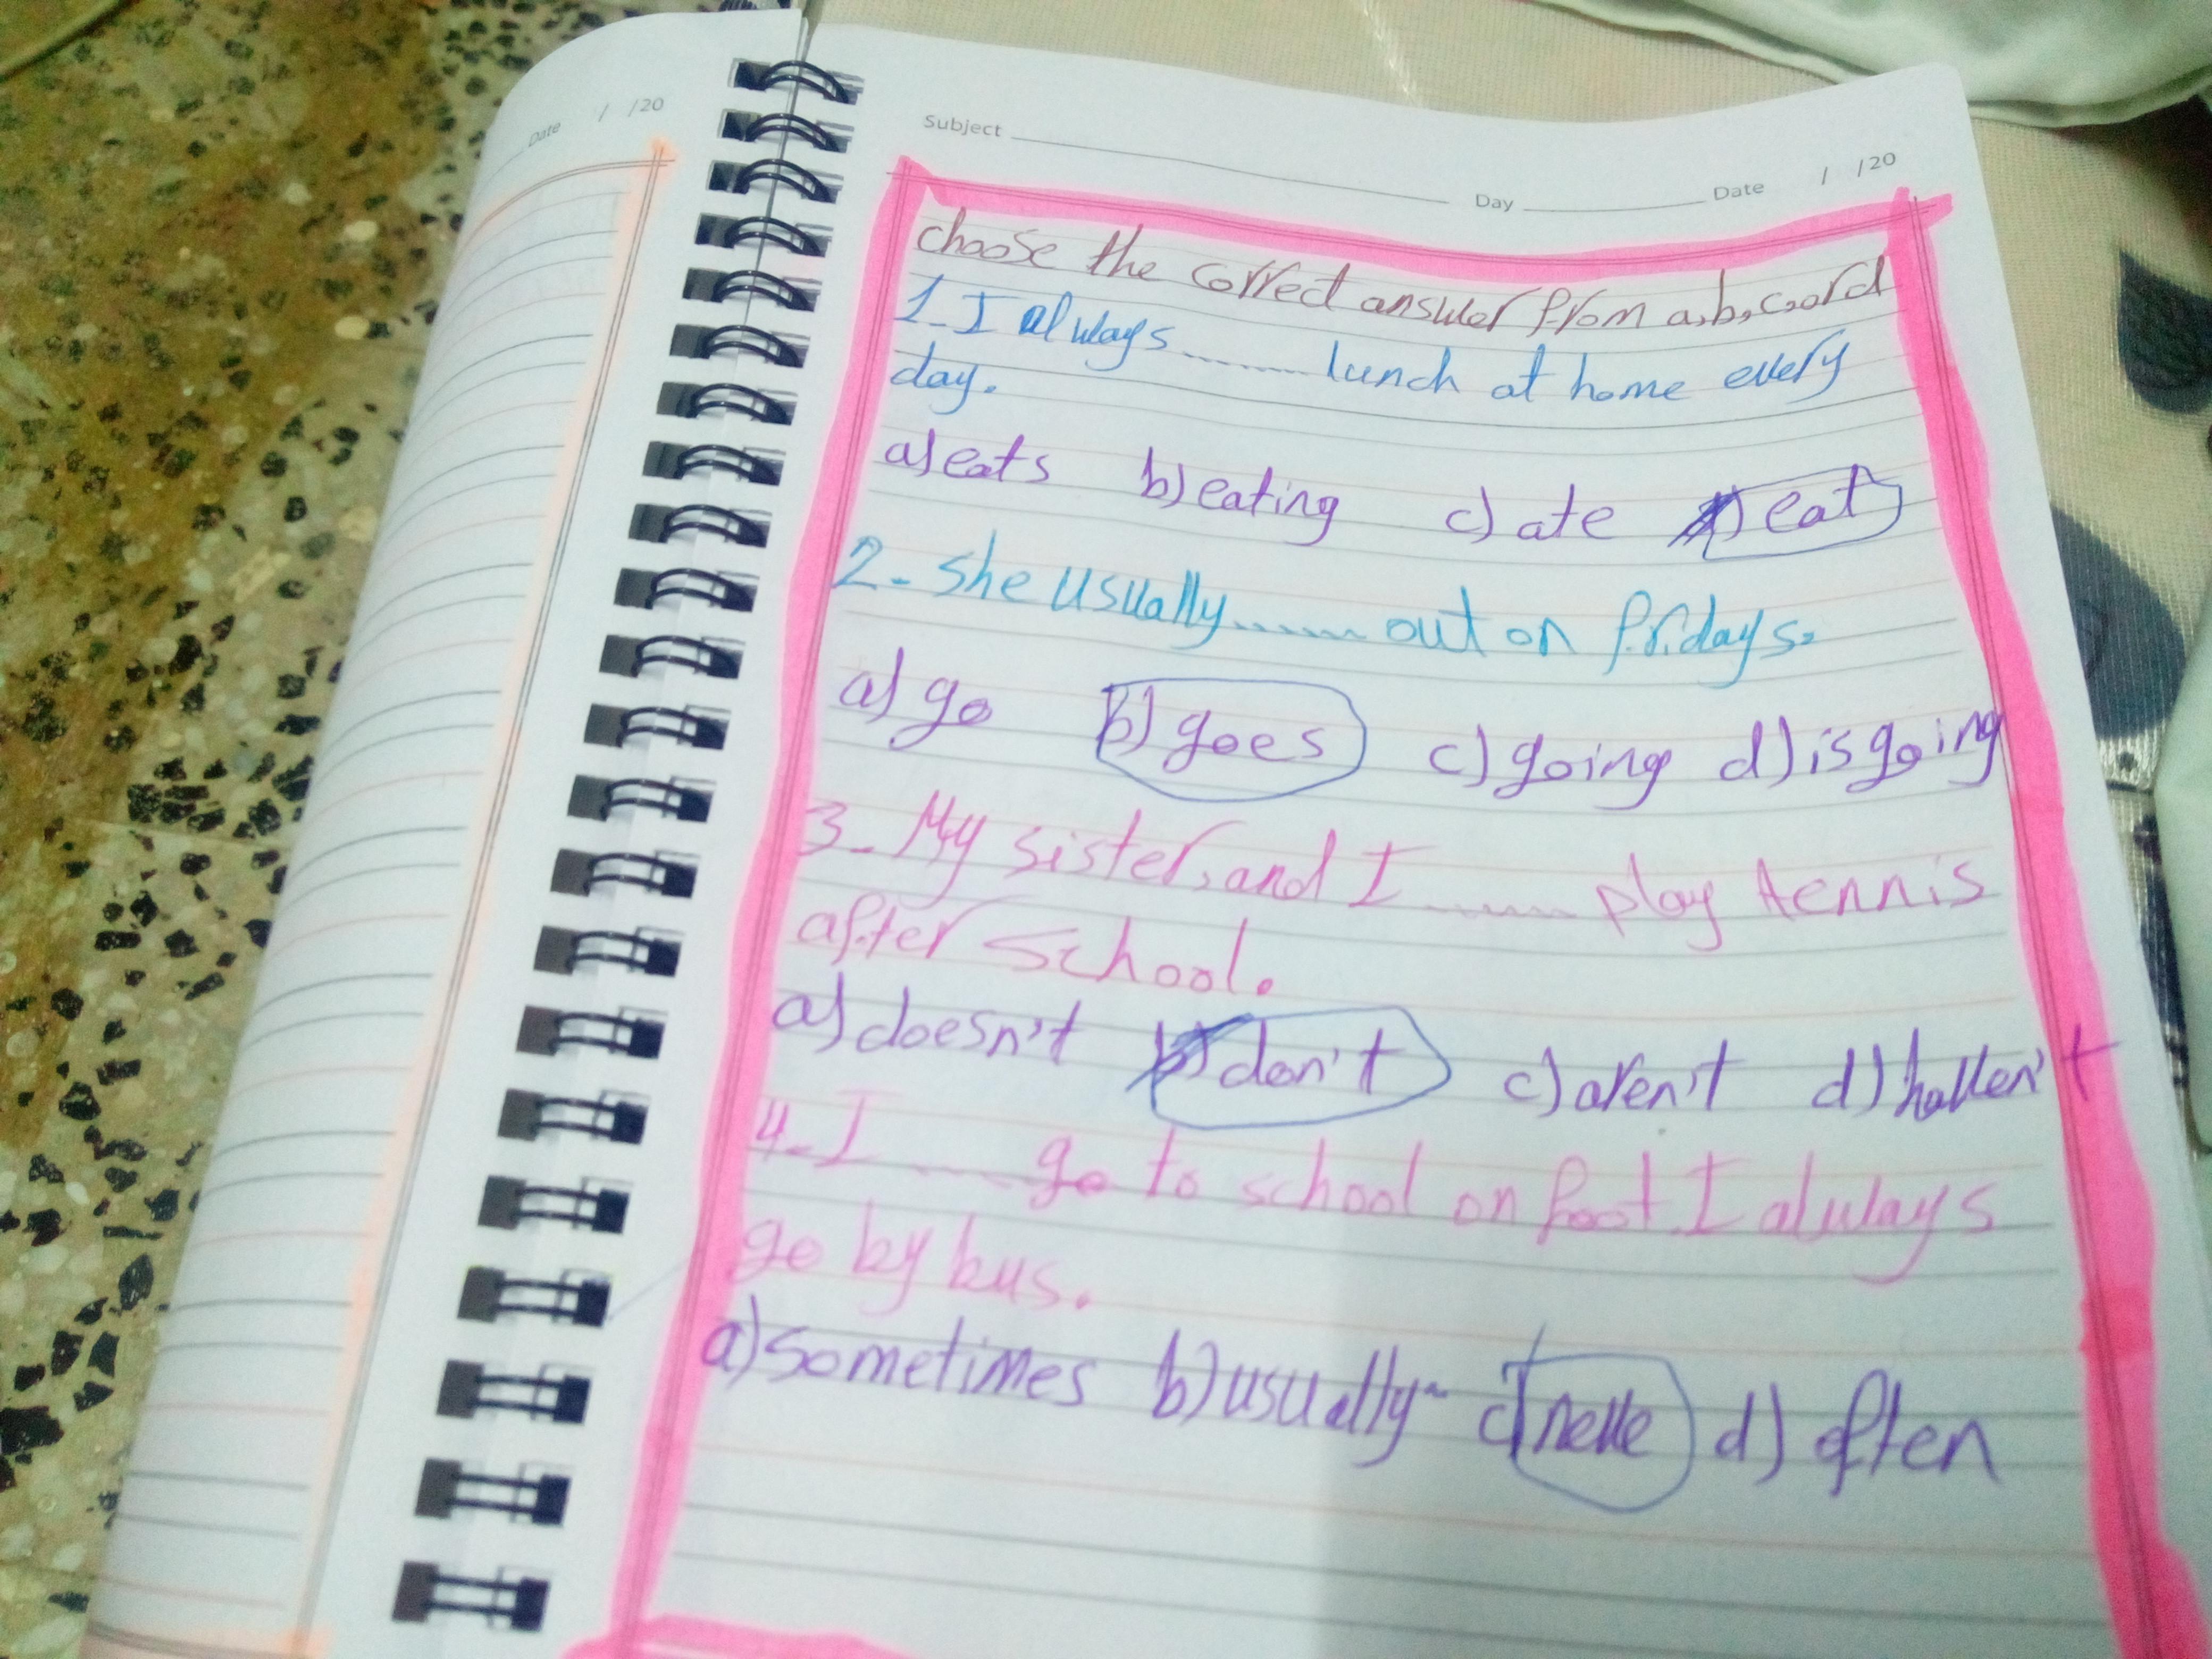 Date / /20
Subject Day Date / /20
choose the correct answer from a,b,c,or d
1-I always ........ lunch at home every
day.
a) eats b) eating c) ate d) eat
2- she usually....... out on fridays.
a) go b) goes c) going d) is going
3- My sister, and I ....... play tennis
after school.
a) doesn't b) don't c) aren't d) haven't
4-I ....... go to school on foot. I always
go by bus.
a) sometimes b) usually c) neve d) often